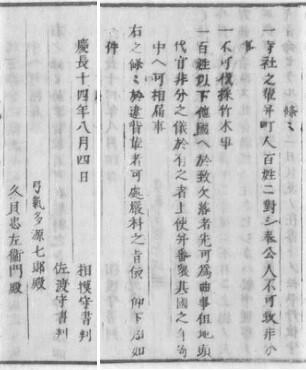 條々
一寺社之輩幷町人百姓ニ對シ奉公人不可致非分
事
一不可伐採竹木事
一百姓以下他國ヘ於致欠落者先可為曲事但地頭
代官非分之儀於有之者上使幷番衆其國之年寄
中ヘ可相届事
右之條々於違背輩者可處嚴科之旨依 仰下届如
件
慶長十四年八月四日
相摸守書判
佐渡守書判
弓氣多源七郎殿
久貝忠左衞門殿